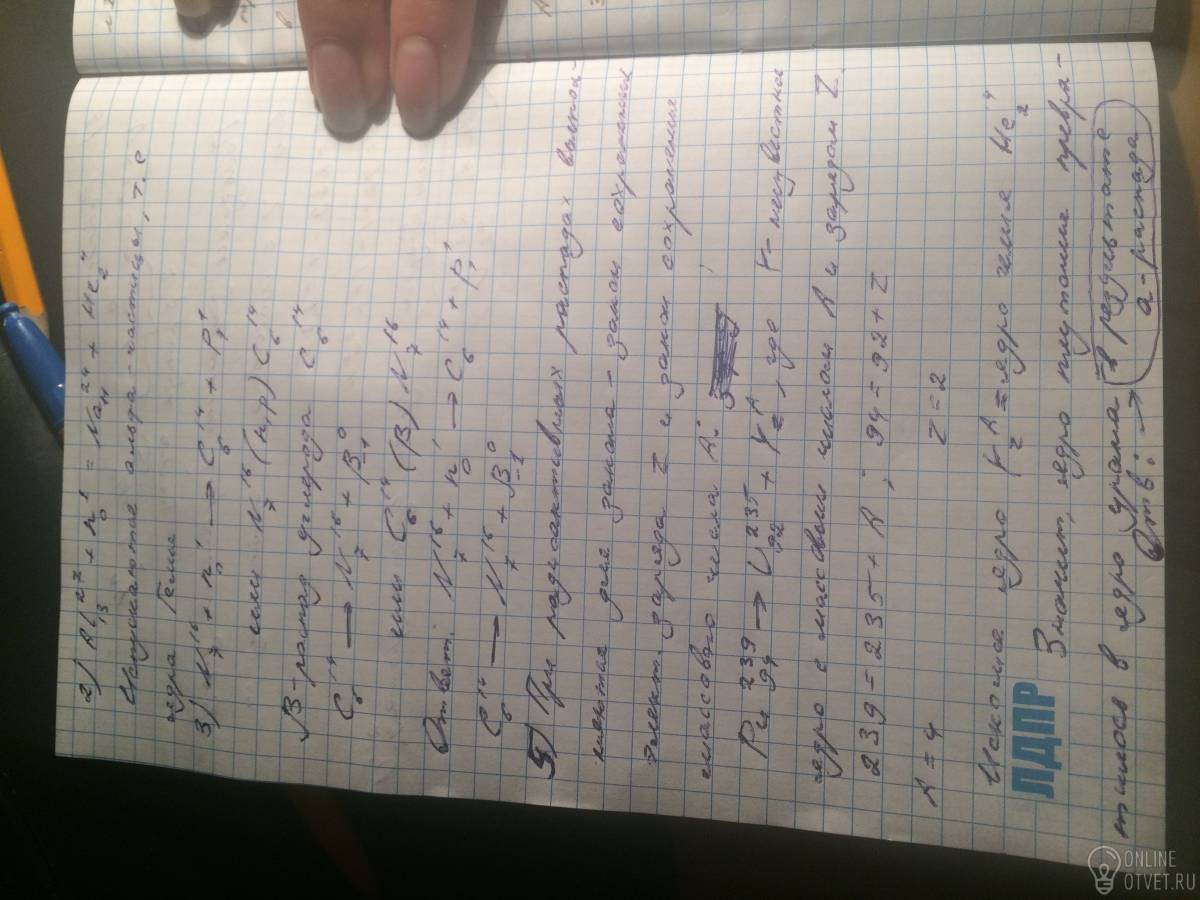 2) Al₁₃²⁷ + n₀¹ = Na₁₁²⁴ + He₂⁴
Испускаются альфа-частицы, т.е
ядра Гелия
3) N₇¹⁶ + n₀¹ → C₆¹⁴ + P₁¹
или N₇¹⁶ (n,p) C₆¹⁴
β⁻-распад углерода C₆¹⁴
C₆¹⁴ → N₇¹⁶ + β₋₁⁰
или C₆¹⁴ (β) N₇¹⁶
Ответ: N₇¹⁶ + n₀¹ → C₆¹⁴ + P₁¹
C₆¹⁴ → N₇¹⁶ + β₋₁⁰
5) При радиоактивных распадах выпол-
няются два закона - закон сохранения
элект. заряда Z и закон сохранения
массового числа A:
Pu₉₄²³⁹ → U₉₂²³⁵ + X_Z^A, где X - неизвестное
ядро с массовым числом A и зарядом Z.
239 = 235 + A; 94 = 92 + Z
A = 4 Z = 2
Искомое ядро X_Z^A = ядро гелия He₂⁴
Значит, ядро плутония превра-
тилось в ядро урана в результате
Отв: → а-распада
ЛДПР
ONLINE
OTVET.RU